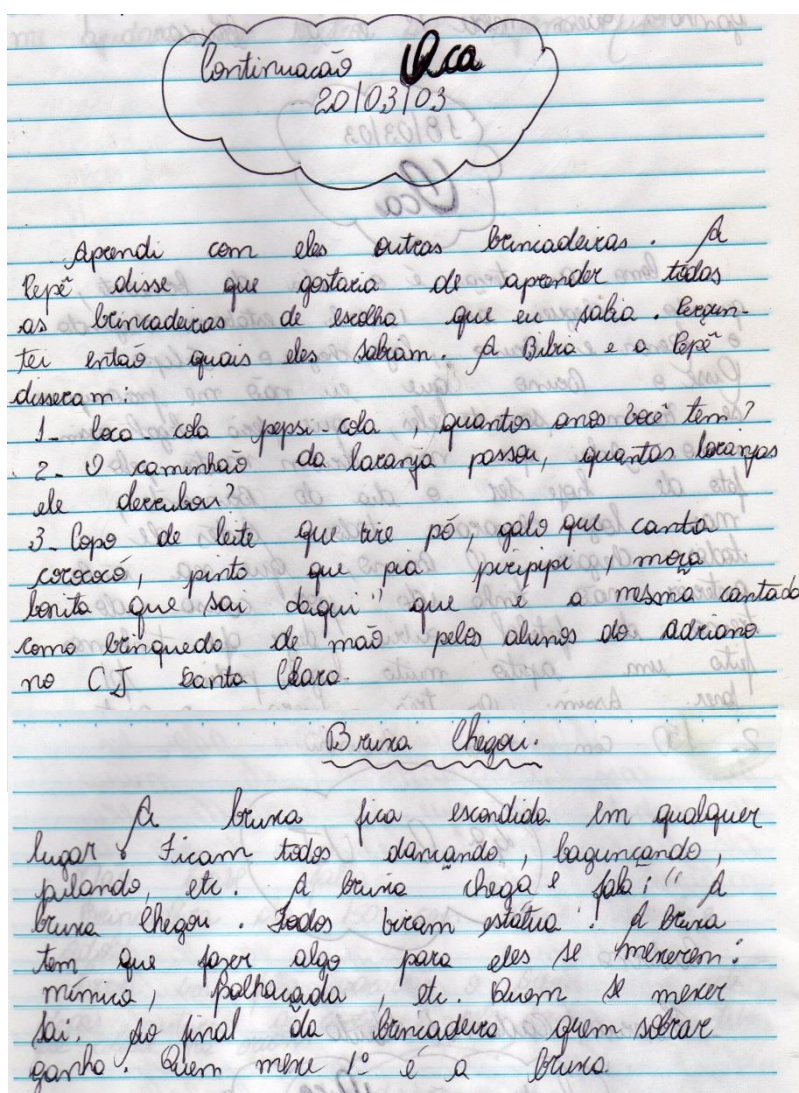 Continuacão Oca
20/03/03
Aprendi com eles outras brincadeiras. A
Pepê disse que gostaria de aprender todas
as brincadeiras de escolha que eu sabia. Pergun-
tei então quais eles sabiam. A Bibia e a Pepê
disseram:
1- Coca-cola pepsi-cola, quantos anos você tem?
2- O caminhão da laranja passou, quantas laranjas
ele derrubou?
3- Copo de leite que tire pó, galo que canta
corococó, pinto que pia piripipi, moça
bonita que sai daqui" que é a mesma cantada
como brinquedo de mão pelos alunos do adriano
no CJ Santa Clara.
Bruxa Chegou.
A bruxa fica escondida em qualquer
lugar. Ficam todos dancando, baguncando,
pulando, etc. A bruxa chega e fala: "A
bruxa chegou. Todos viram estátua"! A bruxa
tem que fazer algo para eles se mexerem:
mímica, palhaçada, etc. Quem se mexer
sai. Ao final da brincadeira quem sobrar
ganha. Quem mexe 1º é a bruxa.